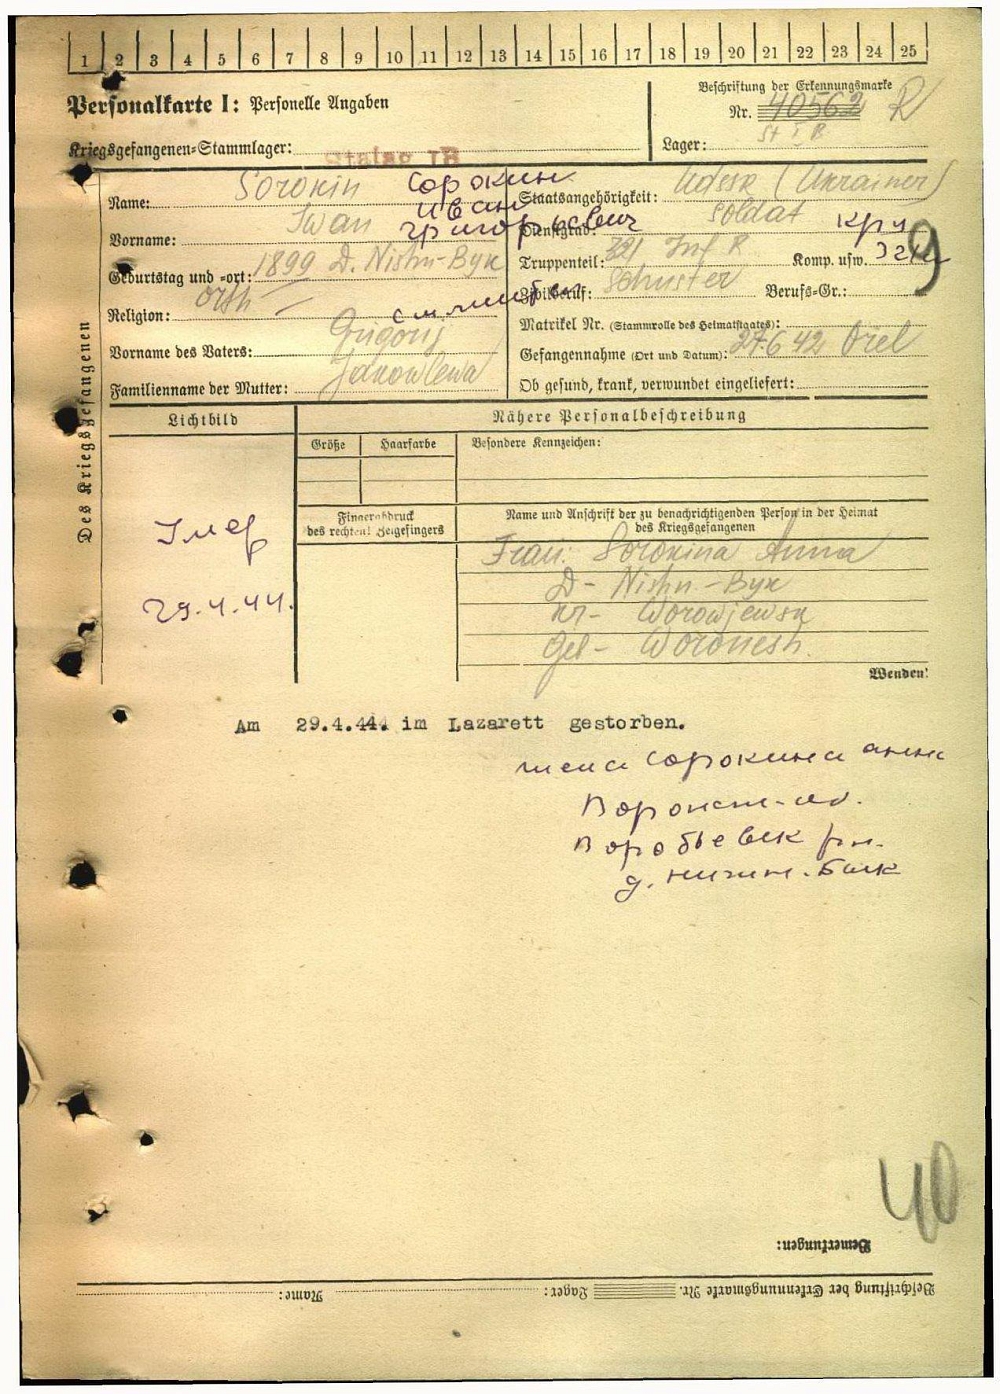 1 2 3 4 5 6 7 8 9 10 11 12 13 14 15 16 17 18 19 20 21 22 23 24 25
Personalkarte I: Personelle Angaben
Beschriftung der Erkennungsmarke
Nr. 40562 R
St I B
Kriegsgefangenen-Stammlager: Stalag IB
Lager:
Des Kriegsgefangenen
Name: Sorokin Сорокин
Vorname: Iwan иван григорьевич
Geburtstag und -ort: 1899 D. Nishn-Byk
Religion: Orth
Vorname des Vaters: Grigorij
Familienname der Mutter: Jakowlewa
Staatsangehörigkeit: Udssr (Ukrainer)
Dienstgrad: Soldat
Truppenteil: 321 Inf R Komp. usw.
9
Zivilberuf: Schuster Berufs-Gr.:
Matrikel Nr. (Stammrolle des Heimatstaates):
Gefangennahme (Ort und Datum): 27.6 42 Orel
Ob gesund, krank, verwundet eingeliefert:
Lichtbild
Nähere Personalbeschreibung
Größe Haarfarbe Besondere Kennzeichen:
Fingerabdruck
des rechten Zeigefingers
Name und Anschrift der zu benachrichtigenden Person in der Heimat
des Kriegsgefangenen
Умер
29.4.44.
Frau: Sorokina Anna
D- Nishn-Byk
kr- Worowjewsk
Geb- Woronesh.
Wenden!
Am 29.4.44. im Lazarett gestorben.
жена Сорокина анна
Воронеж-
Воробьевск рн.
д. нижн. Бык
40
Bemerkungen:
Beschriftung der Erkennungsmarke Nr. Lager: Name: